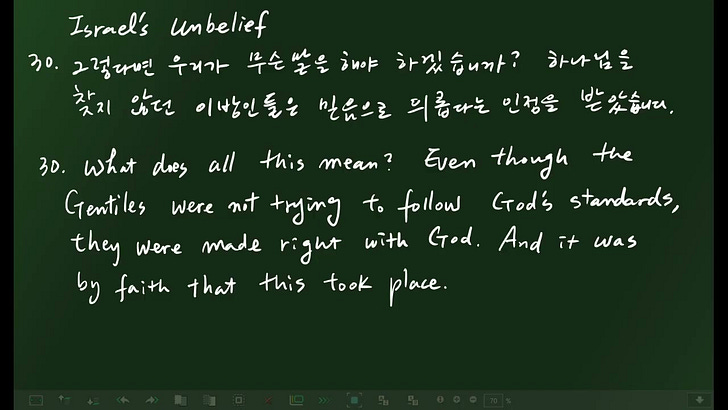 Israel's Unbelief
30. 그렇다면 우리가 무슨 말을 해야 하겠습니까? 하나님을
찾지 않던 이방인들은 믿음으로 의롭다는 인정을 받았습니다.
30. What does all this mean? Even though the
Gentiles were not trying to follow God's standards,
they were made right with God. And it was
by faith that this took place.
70 %